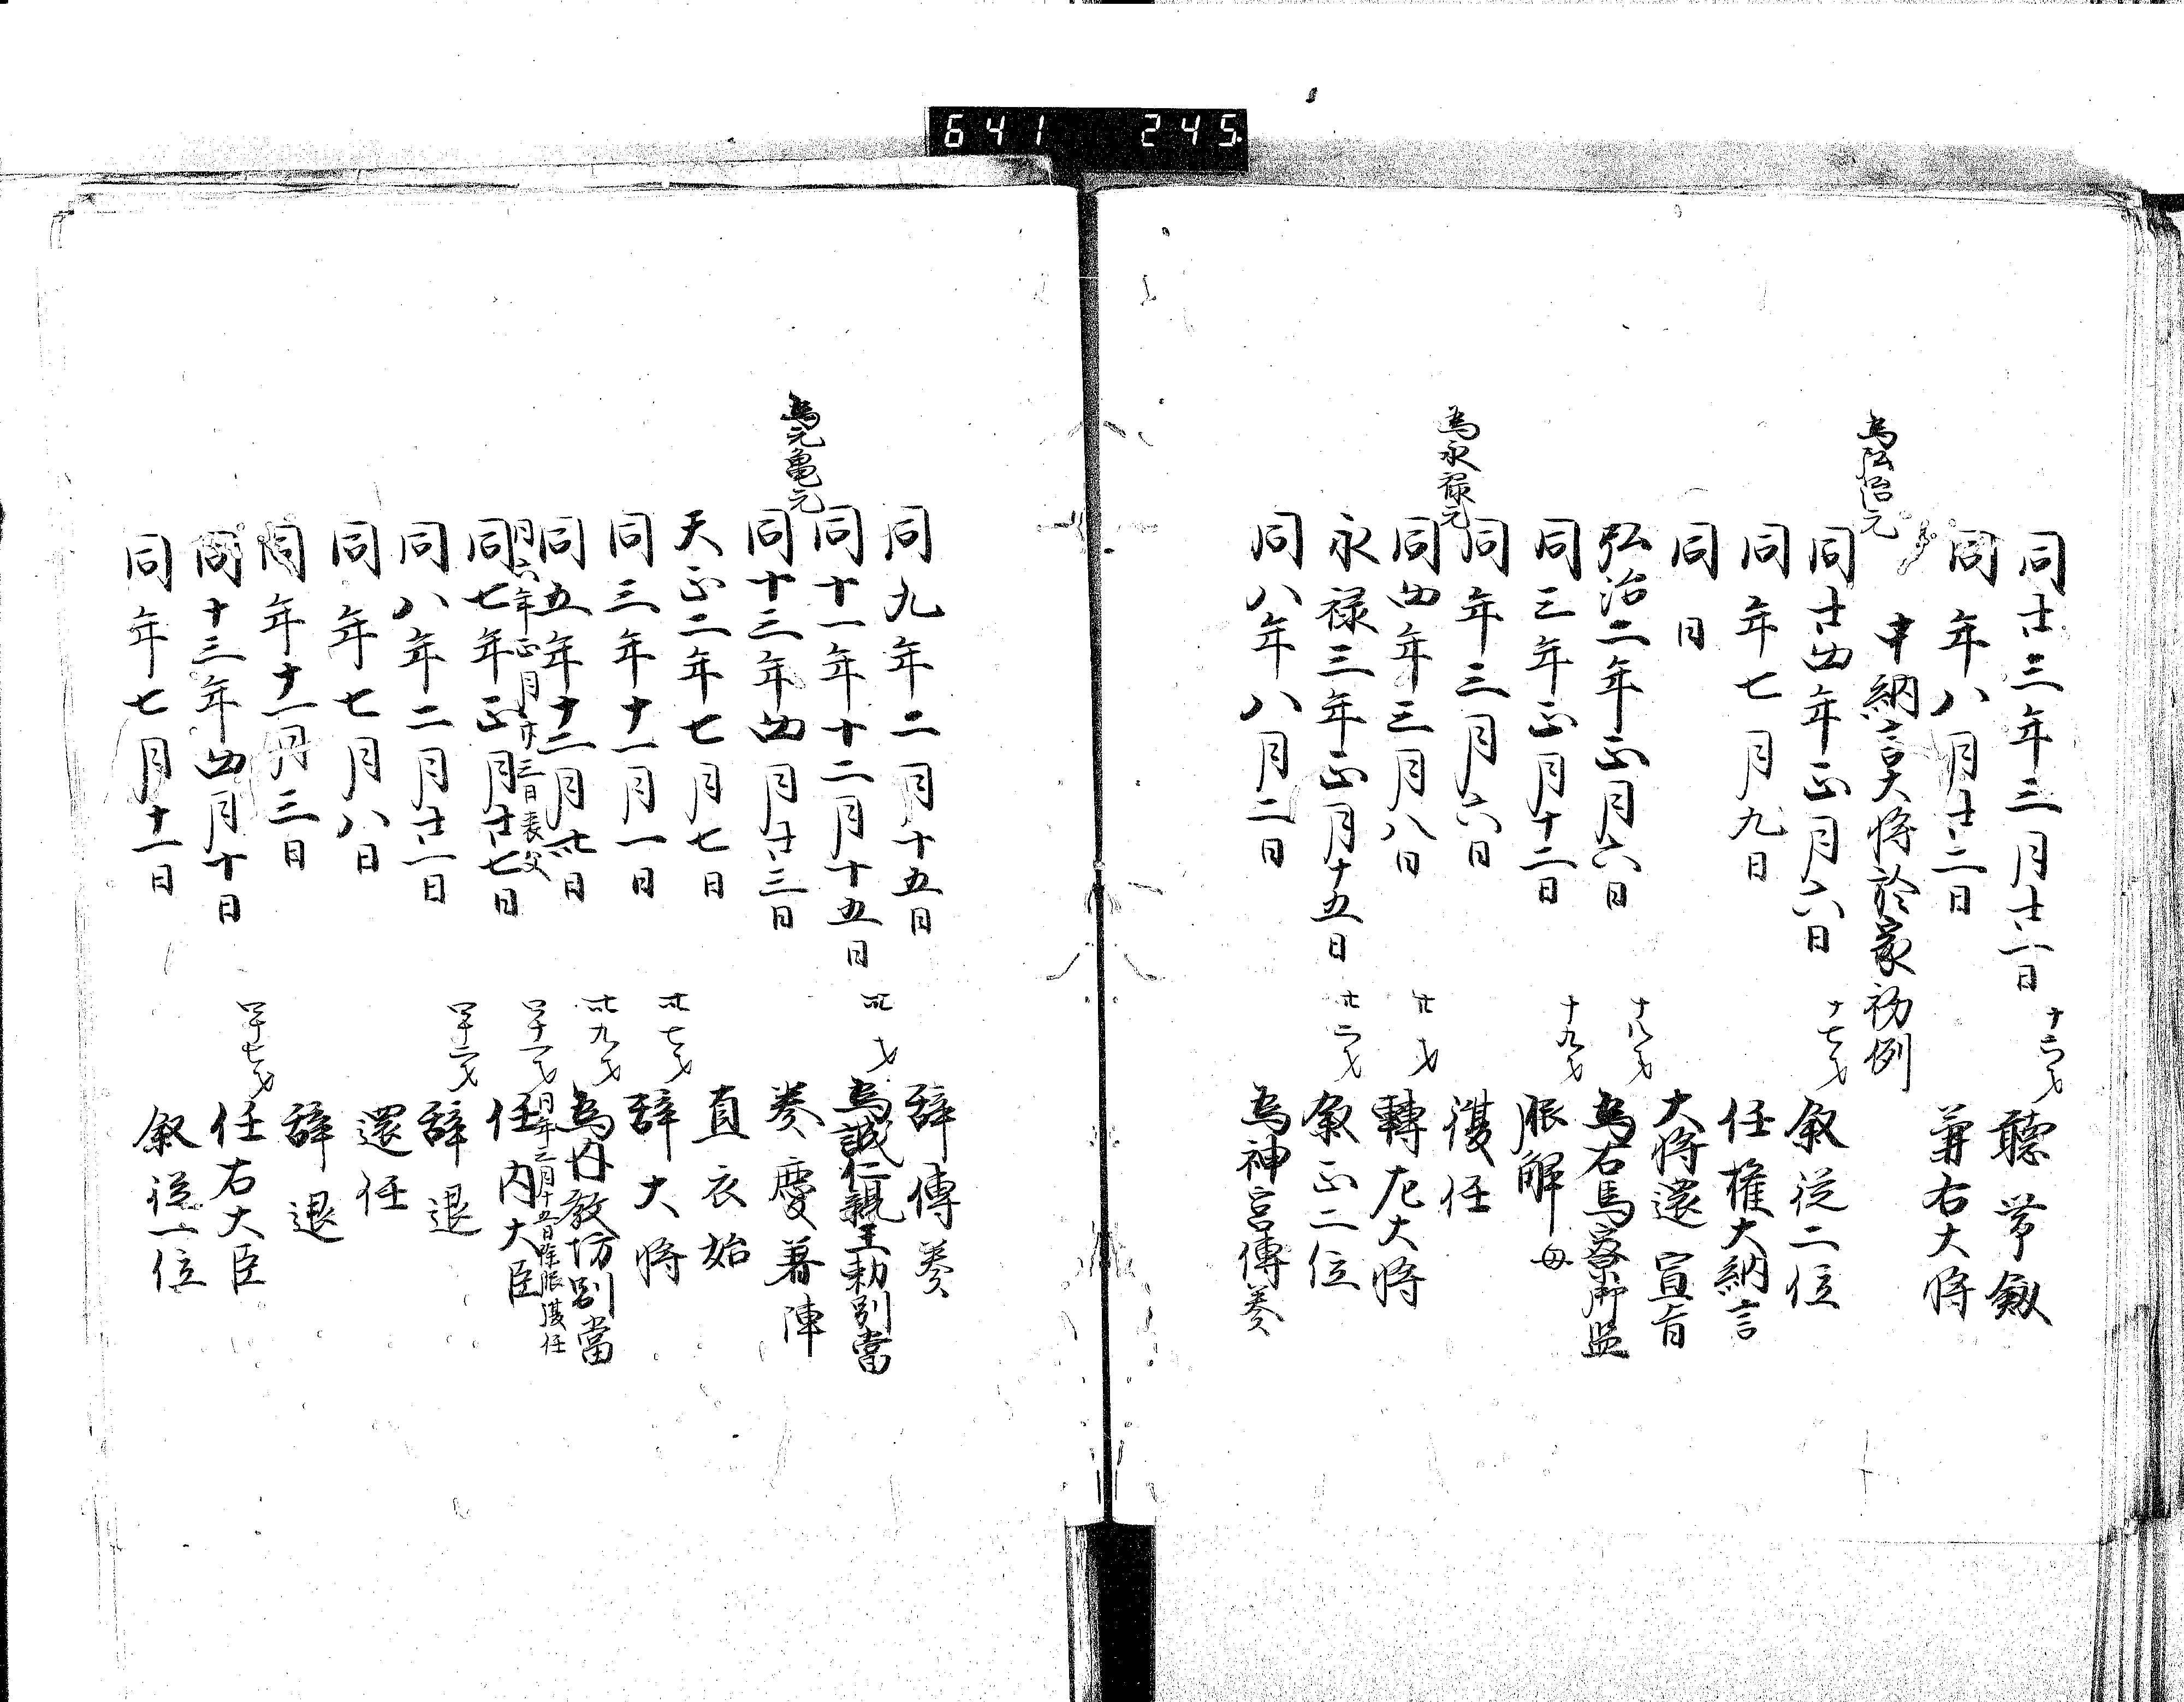 641 245
同廿三年三月廿一日 十六才 聽帶劔
同年八月廿二日 兼右大将
中納言大将於家初例
為弘治元
同廿四年正月六日 十七才 叙従二位
同年七月九日 任權大納言
同日 大将還宣旨
弘治二年正月六日 十八才 為右馬寮御監
同三年正月十二日 十九才 服解母
同年三月六日 復任
為永禄元
同四年三月八日 廿才 轉左大将
永禄三年正月十五日 廿二才 叙正二位
同八年八月二日 為神宮傳奏
同九年二月十五日 辞傳奏
同十一年十二月十五日 卅才 為誠仁親王勅別當
為元亀元
同十三年四月廿三日 奏慶着陣
天正二年七月七日 直衣始
同三年十一月一日 卅七才 辞大将
同五年十二月卅日 卅九才 為内教坊別當
同六年正月廿三日喪父 同年三月十五日除服復任
同七年正月廿七日 四十一才 任内大臣
同八年二月廿一日 四十二才 辞退
同年七月八日 還任
同年十一月三日 辞退
同十三年四月十日 四十七才 任右大臣
同年七月十一日 叙従一位